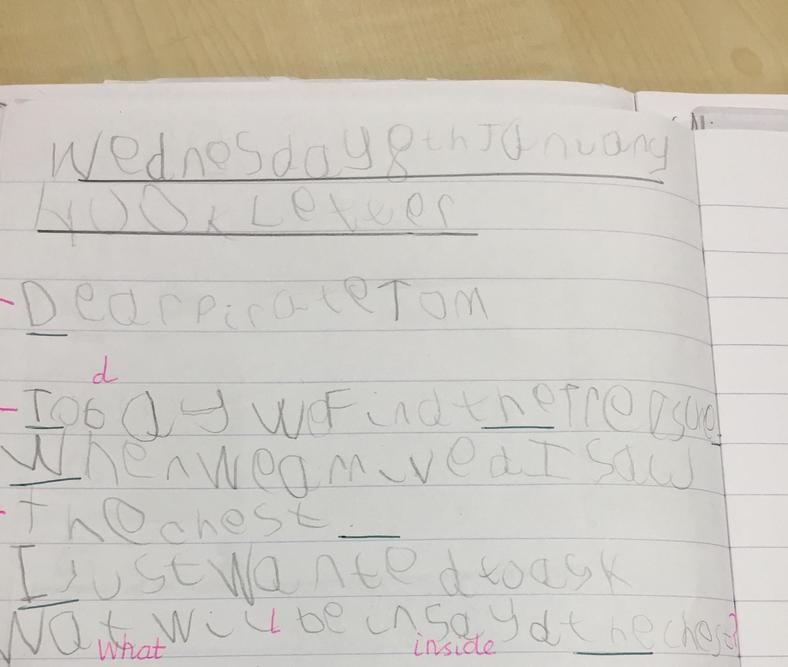 Wednesday 8th January
HOOk Letter
Dear pirate Tom
d
Tobay we Find the Treasure.
When we arrived I saw
The chest
I Just Wanted to ask
Wat will be insayd the chest?
What inside